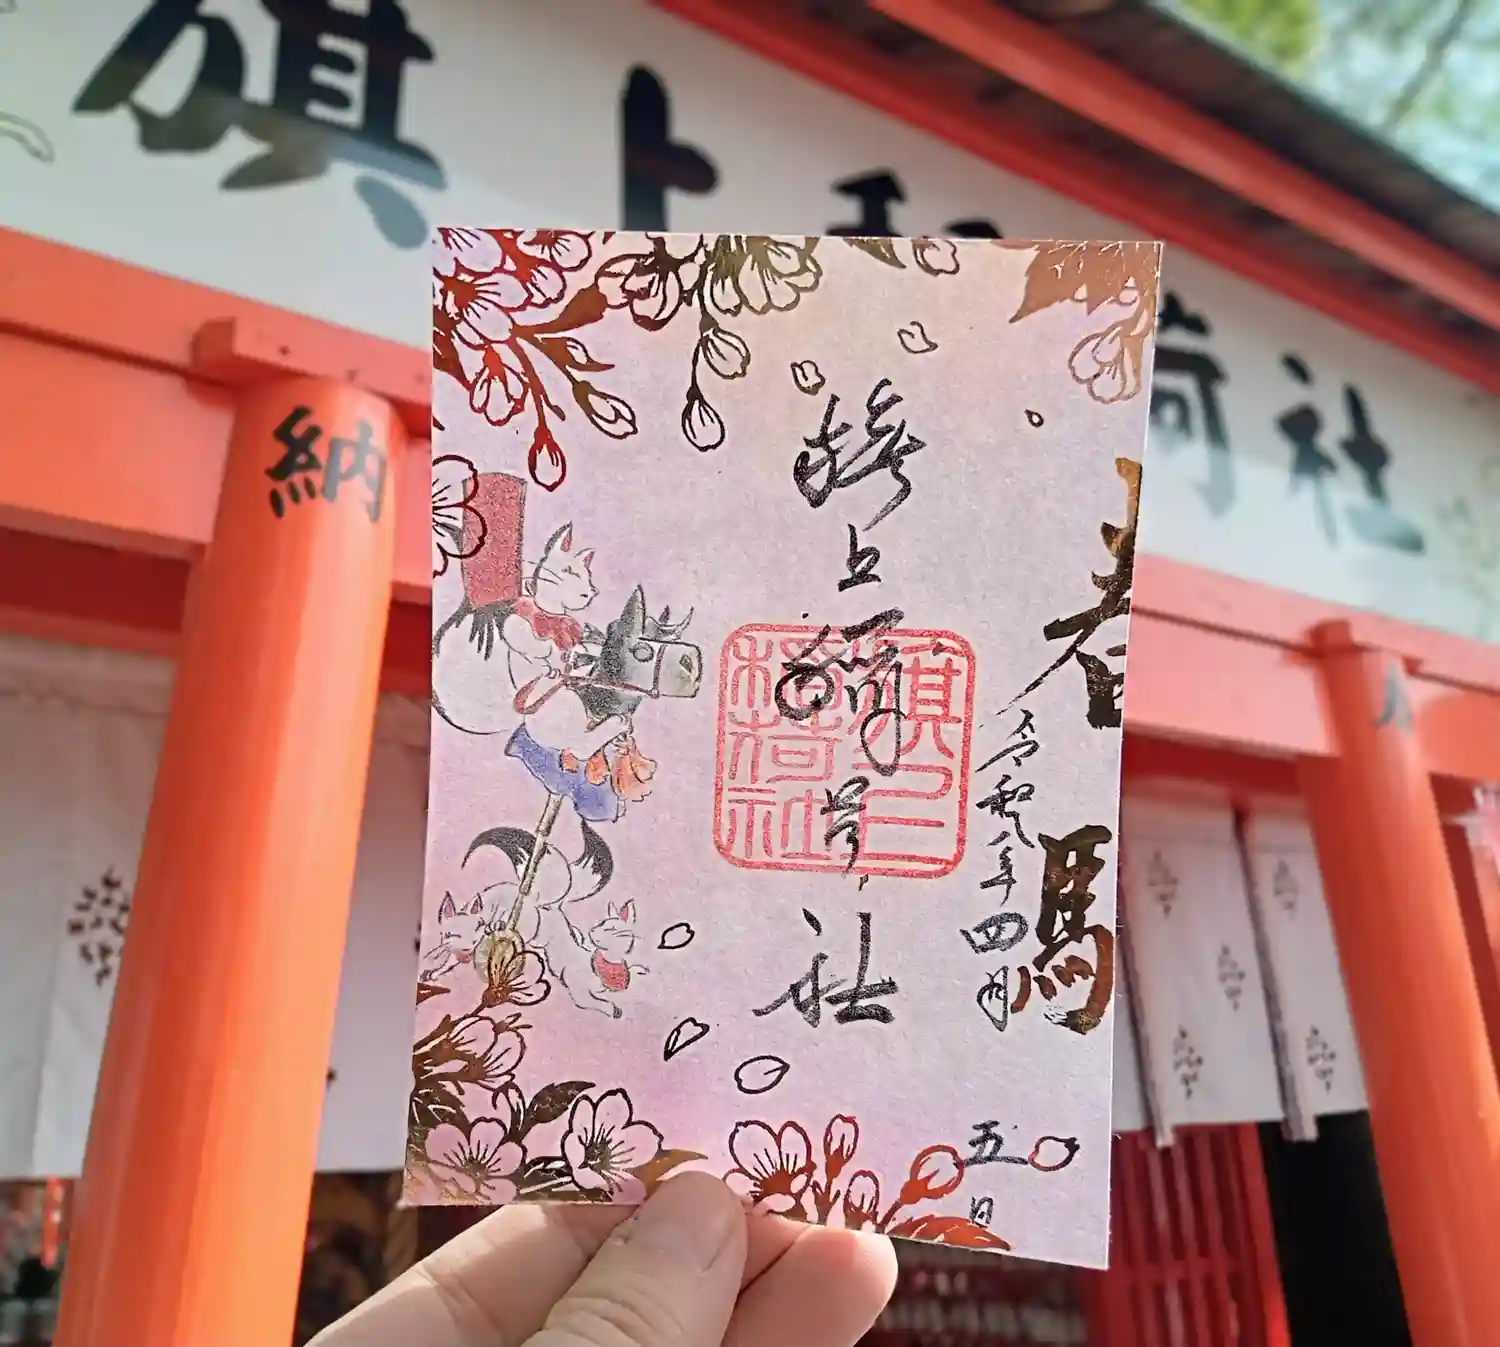 旗上稲荷社
納
春馬
令和八年四月五日
旗上稲荷社
旗上稲荷社